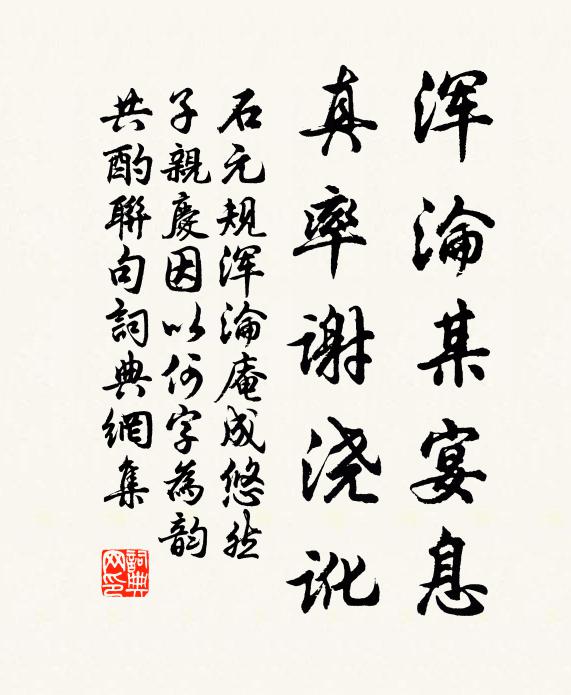 浑沦某宴息
真率谢浇讹
石元规浑沦庵成悠然
子親慶因以何字為韵
共酌聯句詞典網集
詞典网印